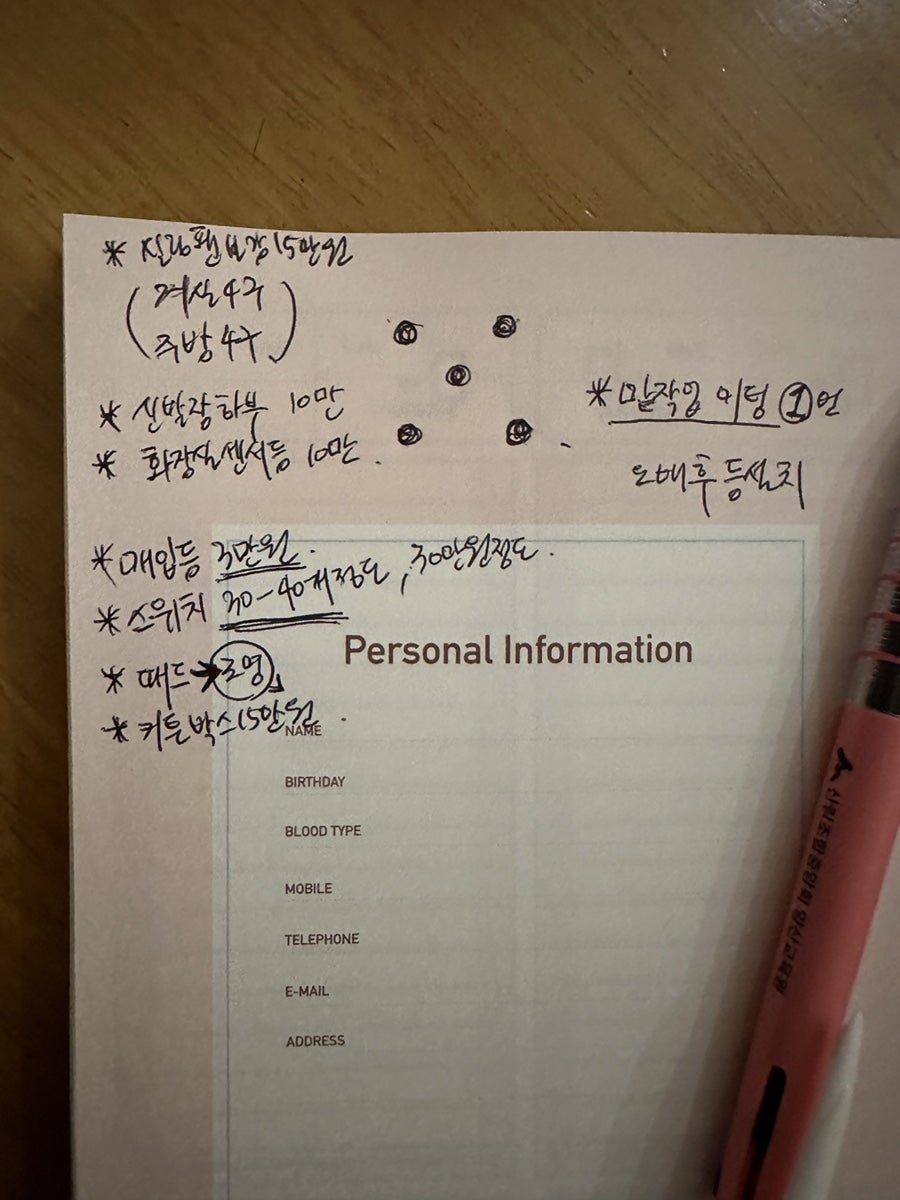 * 실링팬보강 15만원
(거실4구
주방4구)
* 신발장하부 10만
* 화장실센서등 10만.
* 밑작업 이텅 ① 언
도배후등설치
* 매입등 3만원.
* 스위치 30-40개정도, 30만원정도.
* 때드→조명
* 커튼박스 15만원.
Personal Information
NAME
BIRTHDAY
BLOOD TYPE
MOBILE
TELEPHONE
E-MAIL
ADDRESS
산림조합중앙회 임산교육원